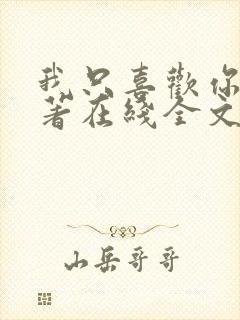 我只喜歡你
著在綫全文
山岳哥哥